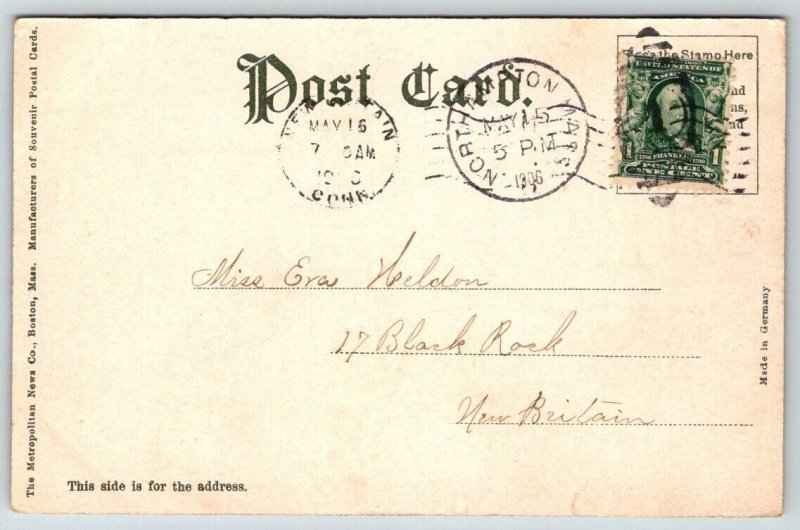 Post Card.
Place the Stamp Here
UNITED STATES OF
AMERICA
FRANKLIN
POSTAGE
1 ONE CENT 1
NEW BRITAIN
MAY 16
7 AM
CONN.
NORTHAMPTON MASS.
MAY 15
5 PM
1906
Miss Eva Weldon
17 Black Rock
New Britain
This side is for the address.
The Metropolitan News Co., Boston, Mass. Manufacturers of Souvenir Postal Cards.
Made in Germany